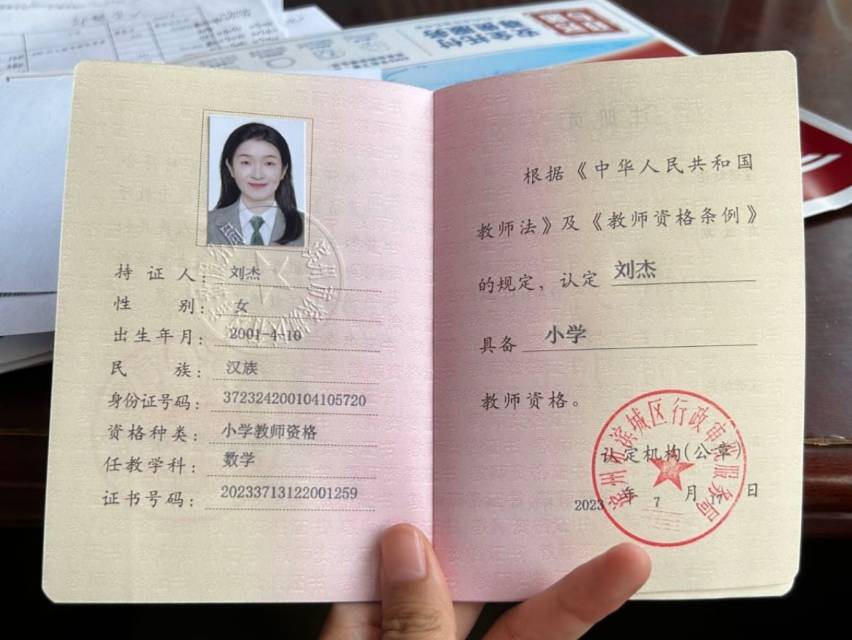 安全托付
尊荣服务
持证人：刘杰
性别：女
出生年月：2001-4-10
民族：汉族
身份证号码：372324200104105720
资格种类：小学教师资格
任教学科：数学
证书号码：20233713122001259
根据《中华人民共和国
教师法》及《教师资格条例》
的规定，认定 刘杰
具备 小学
教师资格。
滨州市滨城区行政审批服务局
认定机构(公章
2023 年 7 月 17 日